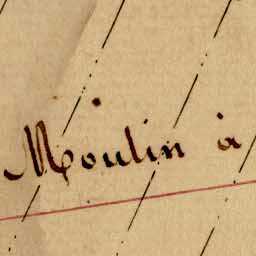 Moulin à